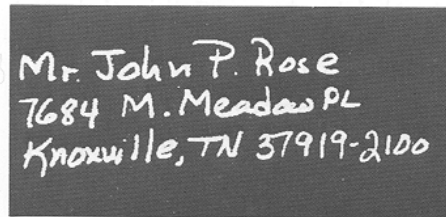 Mr. John P. Rose
7684 M. Meadow PL
Knoxville, TN 37919-2100